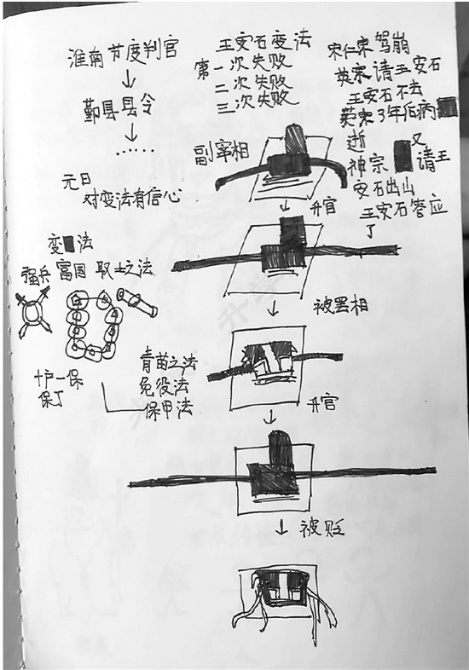 淮南节度判官
↓
鄞县县令
↓
……
元日
对变法有信心
王安石变法
第一次失败
二次失败
三次失败
宋仁宗驾崩
英宗请王安石
王安石不去
英宗3年后病
逝
神宗又
请王
安石出山
王安石答应
了
副宰相
↓升官
变法
强兵 富国 取士之法
十户一保
保丁
青苗之法
免役法
保甲法
↓被罢相
↓升官
↓被贬